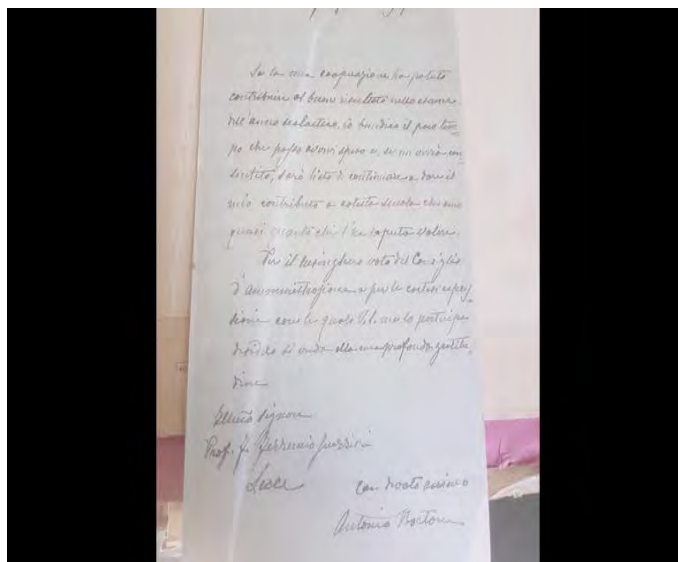 Se la mia cooperazione ha potuto
contribuire al buon risultato nello esame
dell'anno scolastico, io benedico il poco tem=
po che posso avervi speso e, se mi verrà con=
sentito, sarò lieto di continuare a dare il
mio contributo a cotesta scuola che amo
quasi quanto chi l'ha saputa volere.
Per il lusinghiero voto del Consiglio
d'amministrazione e per le cortesi espres=
sioni con le quali S. S. me lo partecipa
di onda della mia profonda gratitu=
dine
Illmo Signore
Prof. F. Ferruccio Guerrieri
Lecce
Con devoto animo
Antonio Bortone